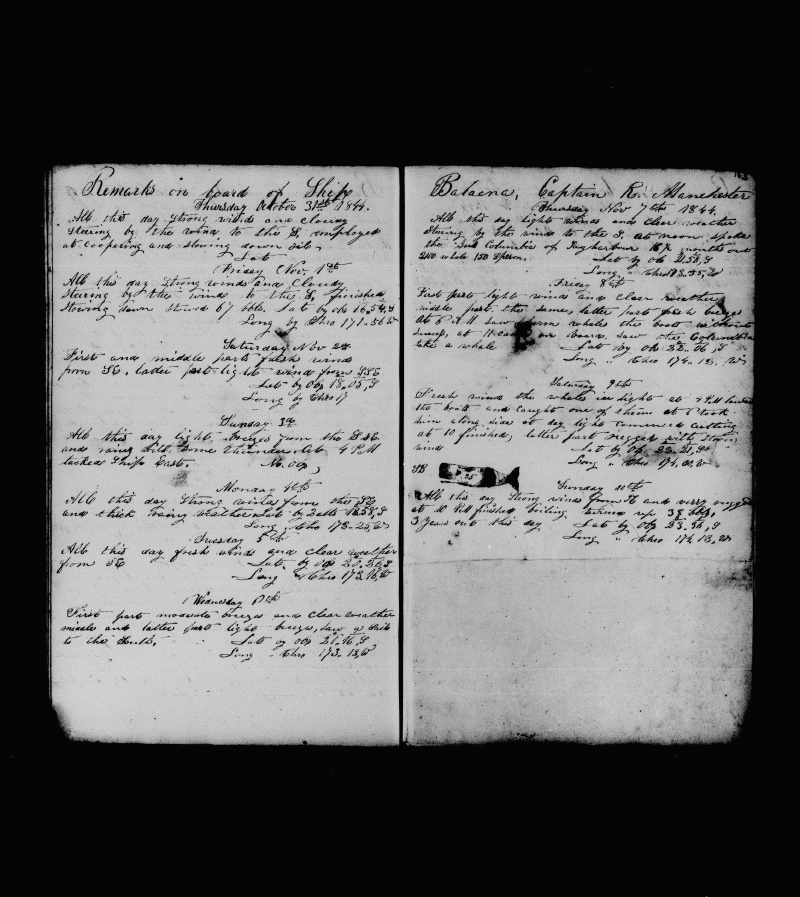 Remarks on board of Ship
Thursday October 31st 1844.
All this day Strong winds and cloudy
Stearing by the wind to the S, employed
at coopering and stowing down oil
Lat
Friday Nov. 1th
All this day Strong winds and Cloudy
stearing by the wind to the S, finished
stowing down stowed 67 bbls, Lat by ob 16,54,S
Long by Chro 171-56 W
Saturday Nov 2d
First and middle parts fresh winds
from SE. latter part light winds from ESE
Lat by Obs 18,05,S
Long by Chro 17
Sunday 3d
All this day light breezes from the
and rainy with some thunder. At 4 P.M
tacked Ship East. No, Obs,
Monday 4th
All this day Strong winds from the SE
and thick rainy weather Lat by 2 alts 18,58,S
Long " Chro 173-25,W
Tuesday 5th
All this day fresh winds and clear weather
from SE Lat by obs 20,
Long " Chro 173,16,W
Wednesday 6th
First part moderate breezes and clear weather
middle and latter part light breezes, saw a Sail
to the South. Lat by obs 21,16,S
Long " Chro 173-13,W
Balaena, Captain R. Manchester
Thursday Nov 7th 1844,
All this day light winds and clear weather
Stearing by the wind to the S, at noon spoke
the Columbia of 16½ months out
2100 whale 150 Sperm. Lat by ob 21,58,S
Long, " Chro 173,35,W
Friday 8th
First part light winds and clear weather
middle part the same, latter part fresh breezes
At 6 A.M. saw whales the boats without
on board, saw the Columbia
take a whale Lat by ob 22-06,S
Long " Chro 174-13, W
Saturday 9th
Fresh winds the whales in sight at P.M lowered
the boats and caught one of them at 6 took
him along side at day light comenced cutting
at 10 finished, latter part rugged with strong
winds Lat by Ob 22-21,S
Long " Chro 174,00,W
Sunday 10th
All this day Strong winds from SE and verry rugged
at 10 P.M finished boiling turned up 38 bbls,
3 years out this day Lat by obs 23,36,S
Long " Chro 174,13,W